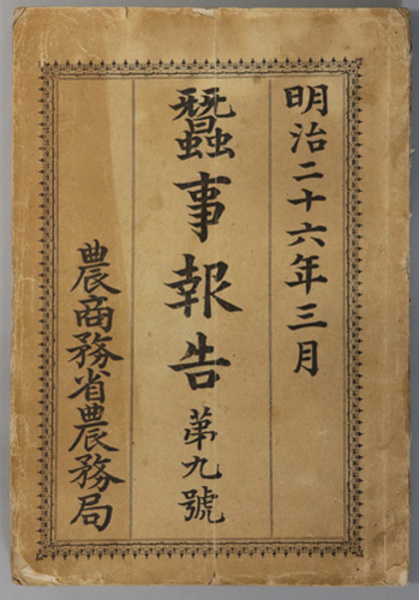 明治二十六年三月
蠶事報告 第九號
農商務省農務局